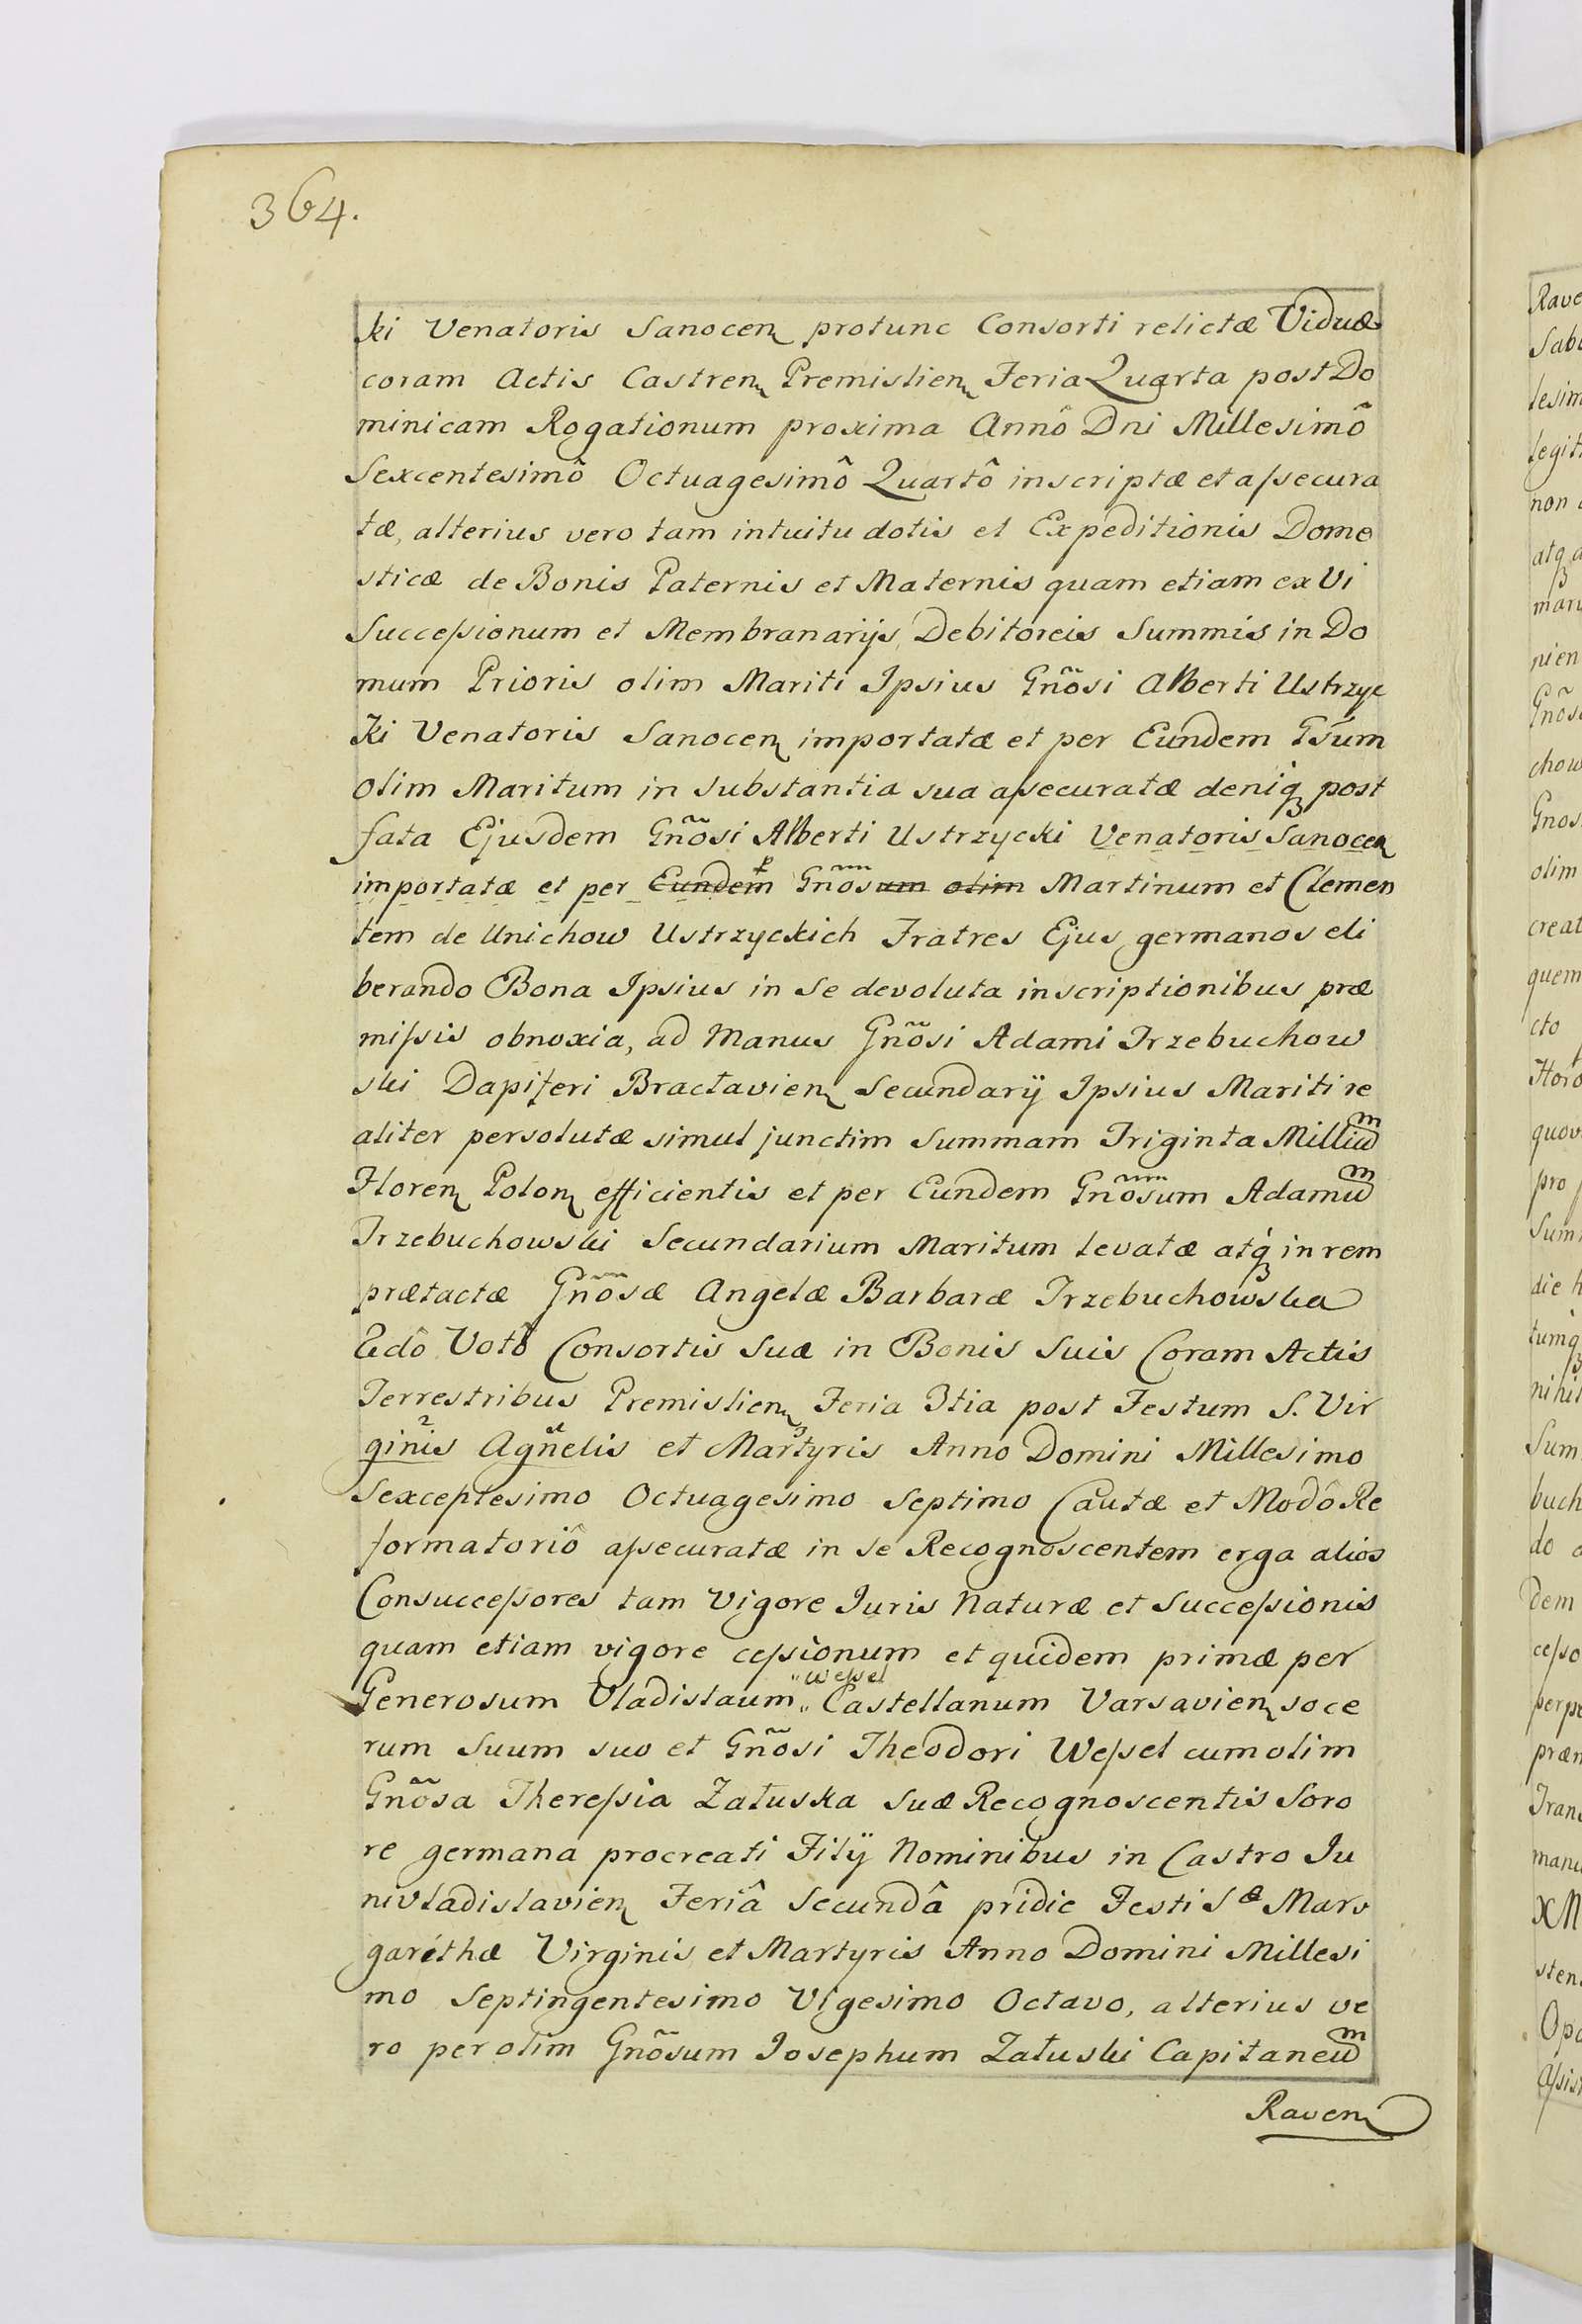 364.
ki Venatoris Sanocen protunc Consorti relictæ Viduæ
coram Actis Castren Premislien Feria Quarta post Do
minicam Rogationum proxima Annô Dni Millesimô
Sexcentesimô Octuagesimô Quartô inscriptæ et aſsecura
tæ, alterius vero tam intuitu dotis et Expeditionis Dome
sticæ de Bonis Paternis et Maternis quam etiam ex Vi
Succeſsionum et Membranarijs, Debitoreis Summis in Do
mum Prioris olim Mariti Ipsius Gnõsi Alberti Ustrzyc
Ki Venatoris Sanocen importatæ et per Eundem Gsum
olim Maritum in substantia sua aſsecuratæ deniq post
fata Ejusdem Gnõsi Alberti Ustrzycki Venatoris Sanocen
importatæ et per Eundem Gnosum olim Martinum et Clemen
tem de Unichow Ustrzyckich Fratres Ejus germanos eli
berando Bona Ipsius in se devoluta inscriptionibus præ
miſsis obnoxia, ad Manus Gnõsi Adami Trzebuchow
ski Dapiferi Bractavien Secundarÿ Ipsius Mariti re
aliter persolutæ simul junctim Summam Triginta Milliu͞m
Floren Polon efficientis et per Eundem Gnõsum Adamu͞m
Trzebuchowski Secundarium Maritum levatæ atq́ in rem
prætactæ Gnõsæ Angelæ Barbaræ Trzebuchowska
2dô Votô Consortis Suæ in Bonis Suis Coram Actis
Terrestribus Premislien Feria 3tia post Festum S. Vir
ginis Agnelis et Martyris Anno Domini Millesimo
Sexceptesimo Octuagesimo Septimo Cautæ et Modô Re
formatoriô aſsecuratæ in se Recognoscentem erga alios
Consucceſsores tam Vigore Juris Naturæ et Succeſsionis
quam etiam vigore ceſsionum et quidem primæ per
„Weſsel
Generosum Vladislaum „ Castellanum Varsavien soce
rum Suum suo et Gnõsi Theodori Weſsel cum olim
Gnõsa Thereſsia Załuska Suæ Recognoscentis Soro
re germana procreati Filÿ Nominibus in Castro Ju
nivladislavien Feriâ Secundâ pridie Festi Sæ Mar
garethæ Virginis et Martyris Anno Domini Millesi
mo Septingentesimo Vigesimo Octavo, alterius ve
ro per olim Gnõsum Josephum Załuski Capitaneu͞m
Raven
Rave
Sab
lesim
legit
non
mari
chow
Gnos
olim
creat
quem
cto
quov
pro
Sum
die h
tumq
nihil
Sum
buch
do
Dem
ceſso
præm
Tran
manu
XM